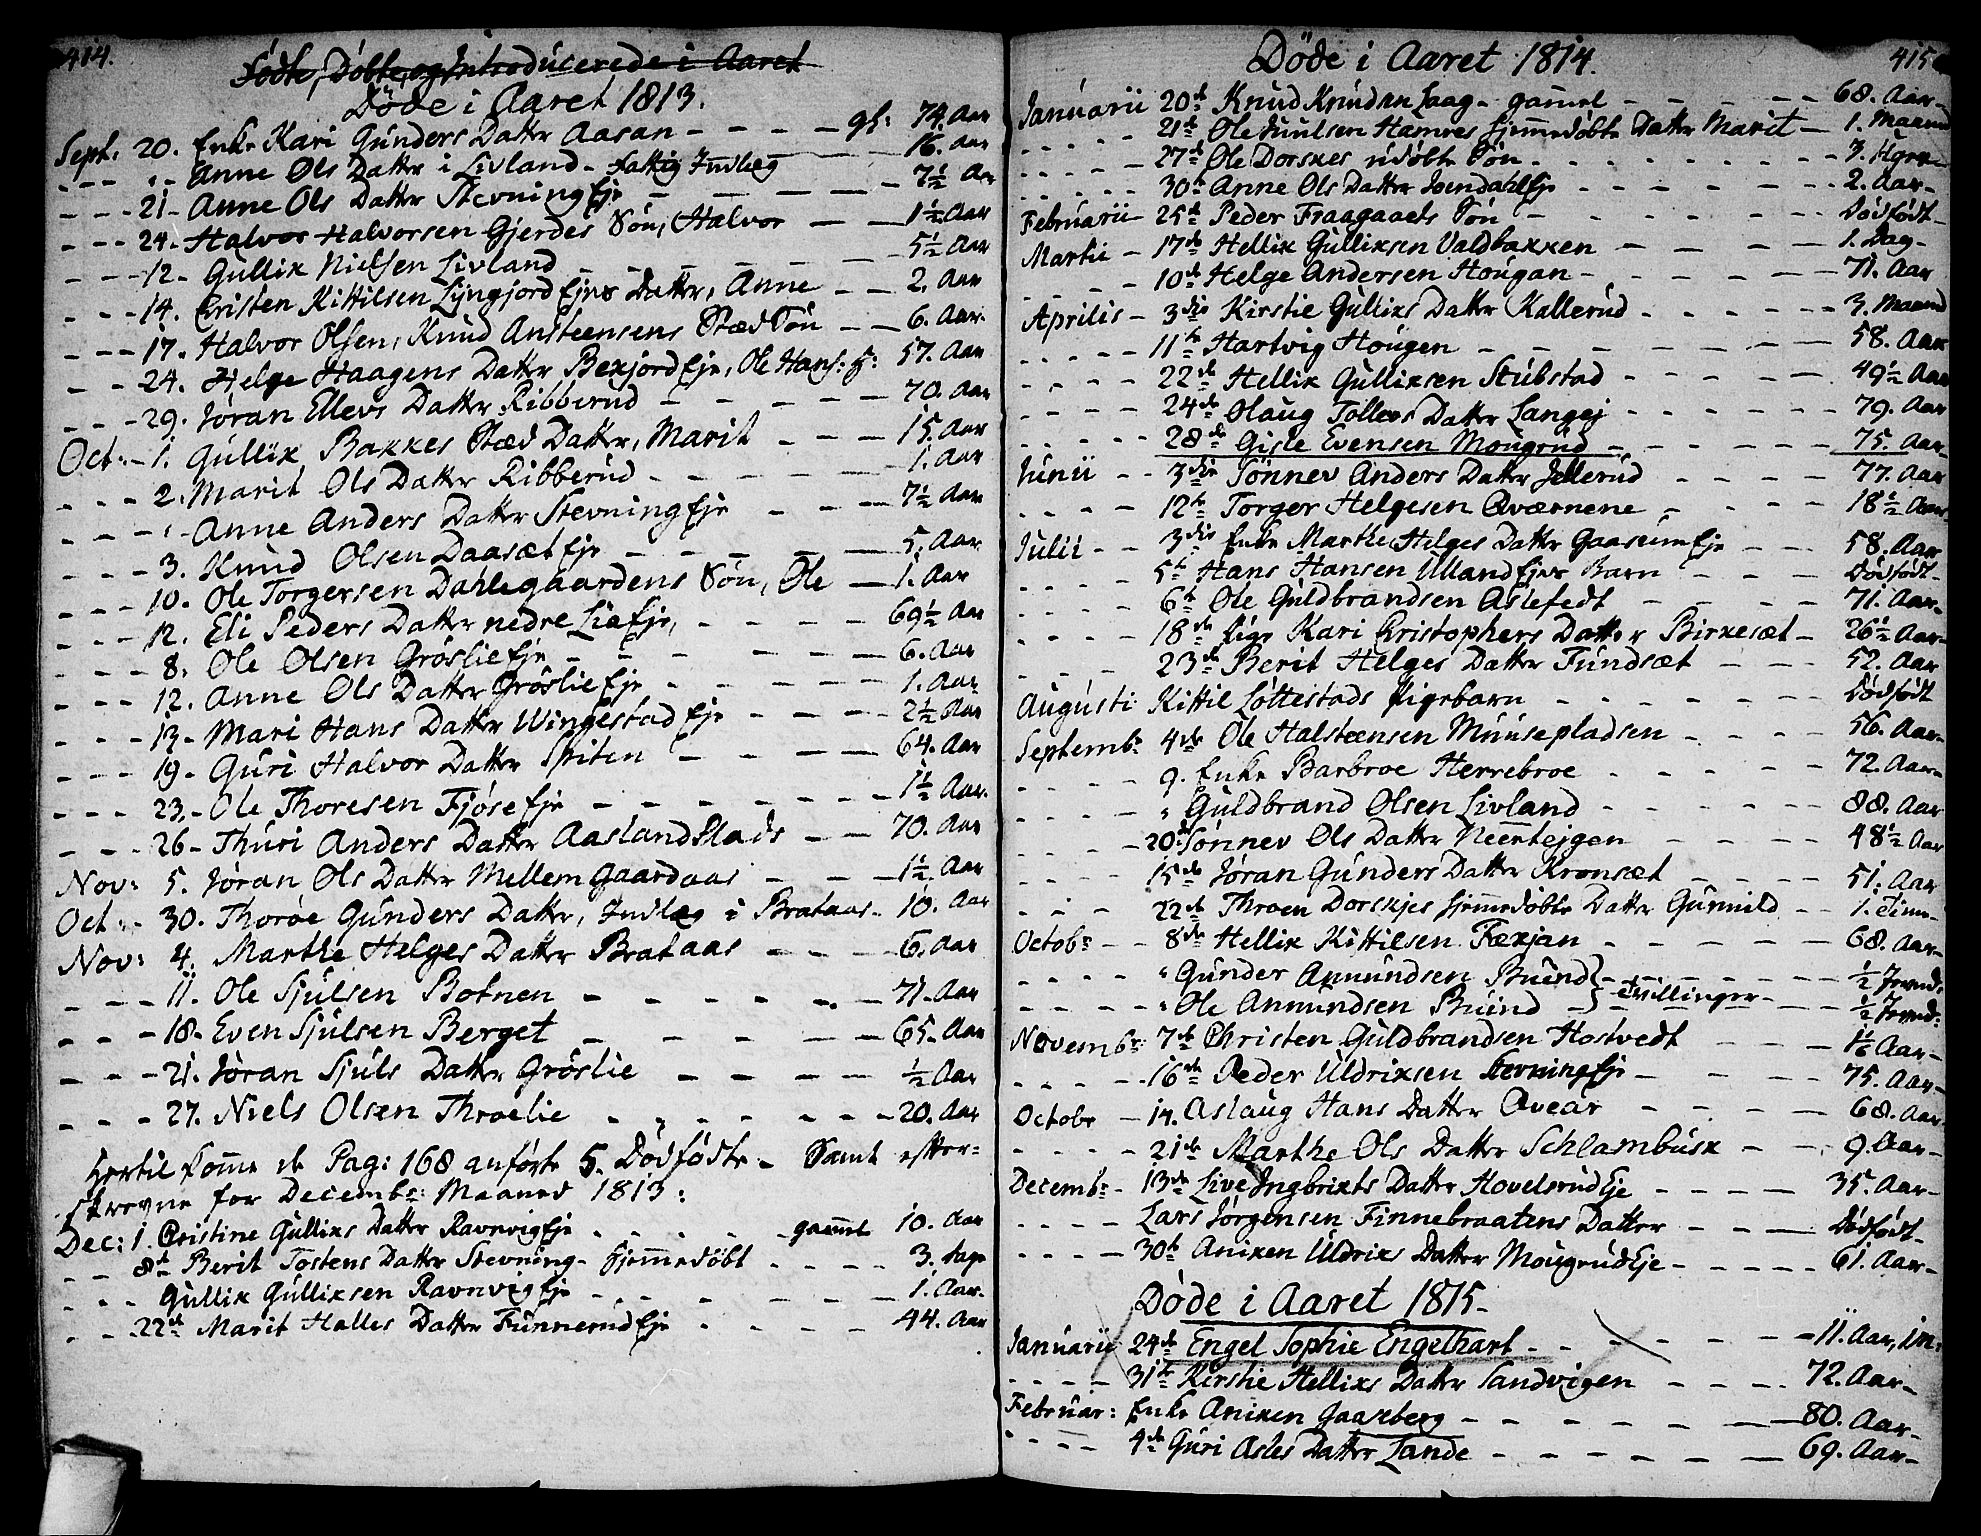 414.
Fødte, Døbte, og Introducerede i Aaret
Døde i Aaret 1813.
Sept: 20. Enke Kari Gunders Datter Aasan - - - - gl: 74. Aar
- - - " - Anne Ols Datter i Livland - Fattig Indlæg 16. Aar
- - - 21 - Anne Ols Datter Stevning Eje - - - 7½ Aar
- - - 24 - Halvor Halvorsen Gjerdes Søn, Halvor - - 1½ Aar
- - - 12 - Gullik Nielsen Livland - - - 5½ Aar
- - - 14. Cristen Kittilsen Lyngjord Ejes Datter, Anne - - 2. Aar
- - - 17. Halvor Olsen, Knud Ansteensens Stæd Søn - - 6. Aar
- - 24. Helge Haagens Datter Bexjord Eje, Ole Hans: 57. Aar
- - - 29. Jøran Ellevs Datter Ribberud - - - 70. Aar
Oct: - 1. Gullik Bakkes Stæd Datter, Marit - - - 15. Aar
- - - 2. Marit Ols Datter Ribberud - - - 1. Aar
- - - " Anne Anders Datter Stevning Eje - - - 7½ Aar
- - - 3. Knud Olsen Daasæt Eje - - - 5. Aar
- - - 10. Ole Torgersen Dahlegaardens Søn, Ole - 1. Aar
- - - 12. Eli Peders Datter nedre Lia Eje, - - - 69½ Aar
- - - 8. Ole Olsen Grøslie Eje - - - 6. Aar
- - - 12. Anne Ols Datter Grøslie Eje - - - 1. Aar
- - - 13 - Mari Hans Datter Wingestad Eje - - - 2½ Aar
- - - 19 - Guri Halvor Datter Spiten - - - 64. Aar
- - - 23. - Ole Thoresen Fjøse Eje - - - 1½ Aar
- - - 26 - Thuri Anders Datter Aasland Plads - - 70. Aar
Nov: 5. Jøran Ols Datter Mellem Gaardaas - - - 1½ Aar
Oct: 30. Thoroe Gunders Datter, Indlæg i Brataas - 10. Aar
Nov: 4. Marthe Helges Datter Brataas - - - 6. Aar
- - - 11. Ole Sjulsen Botnen - - - 71. Aar
- - - 18 - Even Sjulsen Berget - - - 65. Aar
- - - 21. Jøran Sjuls Datter Grøslie - - - ½ Aar
- - - 27. Niels Olsen Throelie - - - 20. Aar
Hertil komme de Pag: 168 anførte 5. Dødfødte - Samt efter-
skrevne for Decembr: Maaned 1813:
Dec: 1. Cristine Gulliks Datter Ravnvig Eje - - - gammel 10. Aar
- - 8de Berit Tostens Datter Stevning - hjemmedøbt - - - 3. Dage
- - - Gullik Gulliksen Ravnvig Eje - - - 1. Aar
- - 22de Marit Halles Datter Funnerud Eje - - - 44. Aar
415
Døde i Aaret 1814.
Januarii 20de Knud Knudsen Laag - gammel - - - 68. Aar
- - - 21de Ole Juulsen Hamres hjemmedøbte Datter Marit - 1. Maaned
- - - 27de Ole Dorskes udøbte Søn - - - 3. Uger
- - - 30te Anne Ols Datter Jondahl Eje - - - 2. Aar
Februarii 25de Peder Fraagaaets Søn - - - Dødfødt
Martii - 17de Hellik Gulliksen Valdbakken - - - 1. Dag
- - - 10de Helge Andersen Hougan - - - 71. Aar
Aprilis - 3die Kirstie Gulliks Datter Kallerud - - - 3. Maaned
- - - 11te Hartvig Hougen - - - 58. Aar
- - - 22de Hellik Gulliksen Stubstad - - - 49½ Aar
- - - 24de Olaug Tollevs Datter Langej - - - 79. Aar
- - - 28de Gisle Evensen Mougrud - - - 75. Aar
Junii - - 3die Tønnev Anders Datter Jellerud - - - 77. Aar
- - - 12te Torger Helgesen Qværnene - - - 18½ Aar
Julii - - 3die Enke Marthe Helges Datter Gaasein Eje - - 58. Aar
- - - 5te Hans Hansen Ulland Ejes Barn - - - Dødfødt
- - - 6te Ole Guldbrandsen Aslefedt - - - 71. Aar
- - - 18de Pige Kari Cristophers Datter Birkesæt - 26½ Aar
- - - 23de Berit Helges Datter Fundsæt - - - 52. Aar
Augusti Kittil Løttestads Pigebarn - - - Dødfødt
Septembr: 4de Ole Halsteensen Muusepladsen - - - 56. Aar
- - - 9. Enke Barbroe Herrebroe - - - 72. Aar
- - - " Guldbrand Olsen Livland - - - 88. Aar
- - - 20. Tønnev Ols Datter Neerteigen - - - 48½ Aar
- - - 15de Jøran Gunders Datter Kronsæt - - - 51. Aar
- - - 22de Throen Dorskjes hjemmedøbte Datter Gunnild - - 1. Time
Octobr - - 8de Hellik Kittilsen Fæxjan - - - 68. Aar
- - - " Gunder Amundsen Buind } - - - ½
- - - " Ole Anmundsen Buind } tvillinger - ½
Novembr: 7de Christen Guldbrandsen Hostvedt - - - 1⅙ Aar
- - - 16de Peder Uldriksen Stevning Eje - - - 75. Aar
Octobr - 14. Aslaug Hans Datter Qveår - - - 68. Aar
- - - 21de Marthe Ols Datter Schlambusk - - 9. Aar
Decembr - 13de Live Ingbrikts Datter Hovelsrud Eje - - - 35. Aar
- - - Lars Jørgensen Finnebraatens Datter - - - Dødfødt
- - - 30te Aniken Uldriks Datter Mougrud Eje - - - 61. Aar
Døde i Aaret 1815.
Januarii 24de Engel Sophie Engelhart - - - 11. Aar, 1 m:
- - - 31te Kirstie Helliks Datter Sandvigen - - - 72. Aar
Februar: Enke Aniken Gaarberg - - - 80. Aar
- - - 4de Guri Asles Datter Lande - - - 69. Aar